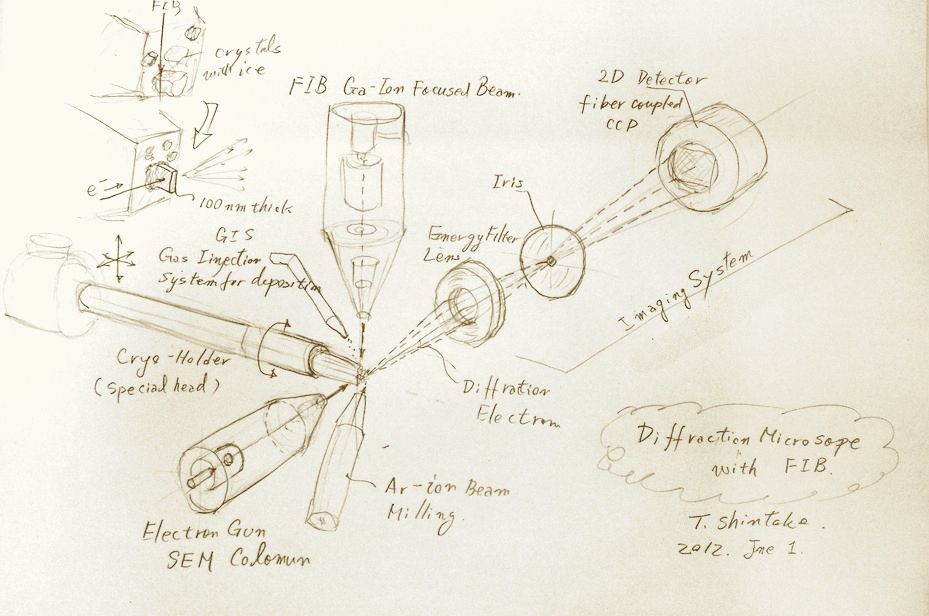 FIB
crystals
with ice
e-
100nm thick
FIB Ga-Ion Focused Beam.
2D Detector
fiber coupled
CCP
Iris
Energy Filter
Lens
GIS
Gas Iinjection
System for deposition
Imaging System
Cryo-Holder
(special head)
Diffration
Electron
Ar-ion Beam
Milling.
Electron Gun
SEM Colomun
Diffraction Microsope
with FIB.
T. Shintake.
2012. Jne 1.